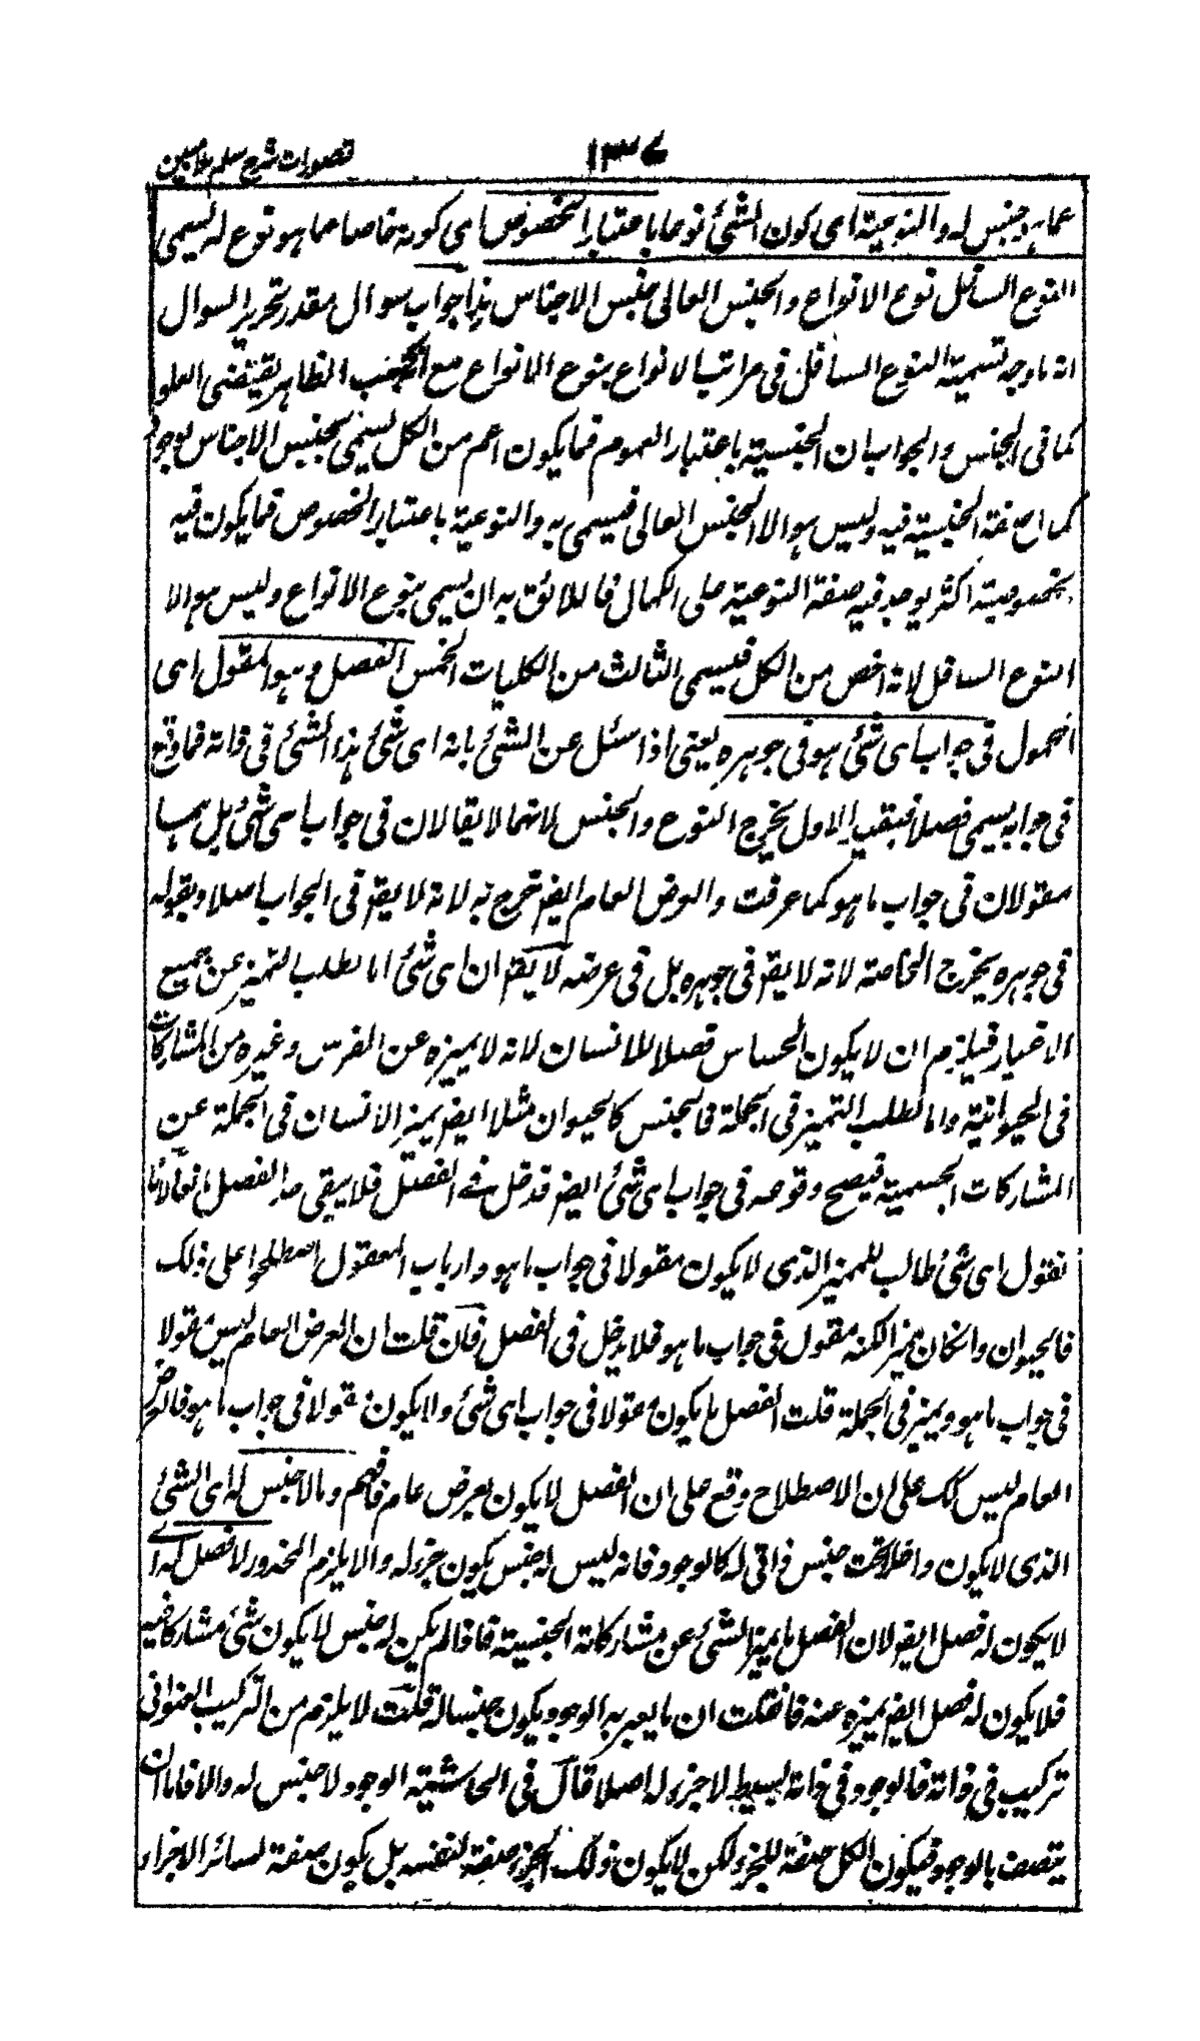 ١٣٧
تصورات شرح سلم ملا مبين
عما هو جنس له والنوعية اى كون الشئ نوعا باعتبار الخصوص اى كونه خاصا عما هو نوع له ليسمى
النوع السافل نوع الانواع والجنس العالى جنس الاجناس هذا جواب سوال مقدر تحرير السوال
انه ما وجه تسمية النوع السافل فى مراتب الانواع بنوع الانواع مع الظاهر يقتضى العلو
كما فى الجنس والجواب ان الجنسية باعتبار العموم فما يكون اعم من الكل يسمى بجنس الاجناس لوجود
كمال صفة الجنسية فيه وليس هو الا الجنس العالى فيسمى به والنوعية باعتبار الخصوص فما يكون فيه
خصوصية اكثر يوجد فيه صفة النوعية على الكمال فاللائق به ان يسمى بنوع الانواع وليس هو الا
النوع السافل لانه اخص من الكل فيسمى الثالث من الكليات الخمس الفصل وهو المقول اى
المحمول فى جواب اى شئ هو فى جوهره يعنى اذا سئل عن الشئ بانه اى شئ هذا الشئ فى ذاته فما وقع
فى جوابه يسمى فصلا فبقيد الاول يخرج النوع والجنس لانهما لا يقالان فى جواب اى شئ بل هما
مقولان فى جواب ما هو كما عرفت والعرض العام ايضا خرج به لانه لا يقع فى الجواب اصلا وبقوله
فى جوهره يخرج الخاصة لانه لا يقع فى جوهره بل فى عرضه لا يقال ان اى شئ اما لطلب التميز عن جميع
الاغيار فيلزم ان لا يكون الحساس فصلا للانسان لانه لا يميزه عن الفرس وغيره من المشاركات
فى الحيوانية واما لطلب التميز فى الجملة فالجنس كالحيوان مثلا ايضا يميز الانسان فى الجملة عن
المشاركات الجسمية فيصح وقوعه فى جواب اى شئ ايضا فدخل فى الفصل فلا يبقى حد الفصل مانعا لانا
نقول اى شئ طالب للمميز الذى لا يكون مقولا فى جواب ما هو وارباب المعقول اصطلحوا على ذلك
فالحيوان وان كان مميزا لكنه مقول فى جواب ما هو فلا يدخل فى الفصل فان قلت ان العرض العام ليس مقولا
فى جواب ما هو ويميز فى الجملة قلت الفصل ما يكون مقولا فى جواب اى شئ ولا يكون مقولا فى جواب ما هو فالعرض
العام ليس كك على ان الاصطلاح وقع على ان الفصل لا يكون بعرض عام فافهم وما لا جنس له اى الشئ
الذى لا يكون داخلا تحت جنس ذاتى له كالوجود فانه ليس له جنس يكون جزء له والا يلزم المحذور لا فصل له اى
لا يكون له فصل ايضا لان الفصل ما يميز الشئ عن مشاركاته الجنسية فاذا لم يكن له جنس لا يكون شئ مشاركا فيه
فلا يكون له فصل ايضا يميزه عنه فان قلت ان ما يعبر به الوجود يكون جنسا له قلت لا يلزم من التركيب العنوانى
تركيب فى ذاته فالوجود فى ذاته بسيط لا جزء له اصلا قال فى الحاشية الوجود لا جنس له والا فاما ان
يتصف بالوجود فيكون الكل صفة للجزء ولكن لا يكون ذلك الجزء صفة لنفسه بل يكون صفة لسائر الاجزاء